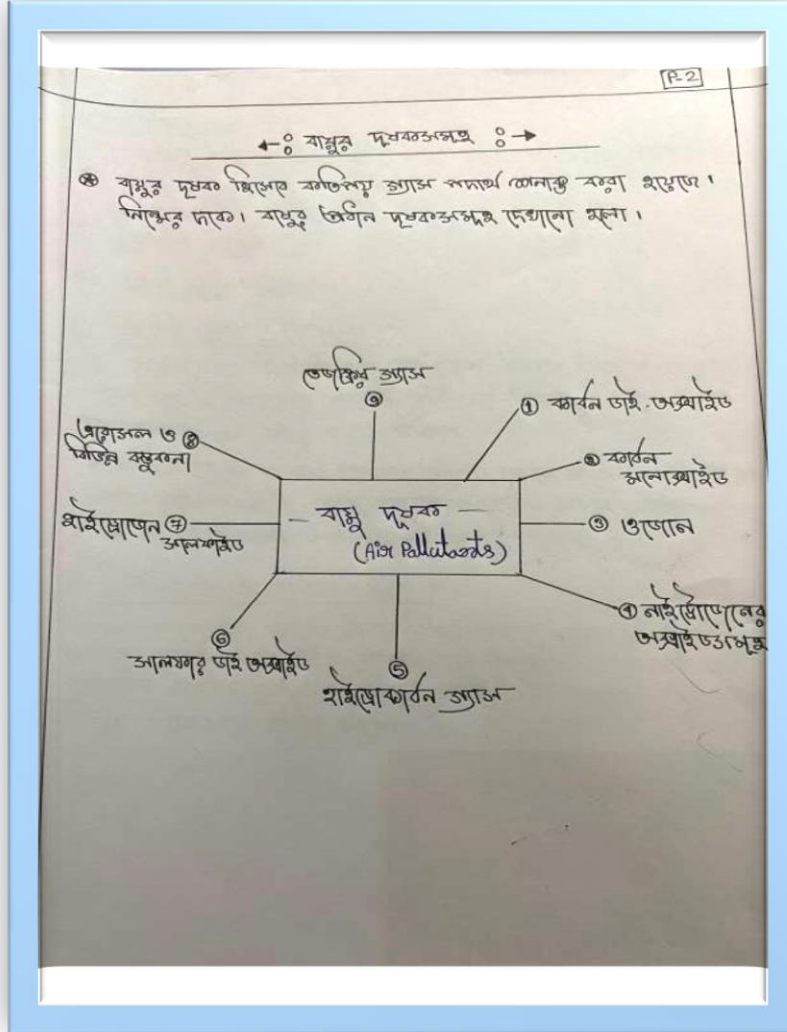 P-2
←ঃ বায়ুর দূষকসমূহ ঃ→
⊛ বায়ুর দূষক হিসেবে কতিপয় গ্যাস পদার্থ শনাক্ত করা হয়েছে।
নিম্নের ছকে। বায়ুর প্রধান দূষকসমূহ দেখানো হলো।
তেজস্ক্রিয় গ্যাস
⑨
① কার্বন ডাই-অক্সাইড
② কার্বন
মনোক্সাইড
③ ওজোন
④ নাইট্রোজেনের
অক্সাইডসমূহ
⑤
হাইড্রোকার্বন গ্যাস
⑥
সালফার ডাই অক্সাইড
হাইড্রোজেন ⑦
সালফাইড
এরোসল ও ⑧
বিভিন্ন বস্তুকনা
- বায়ু দূষক -
(Air Pollutants)